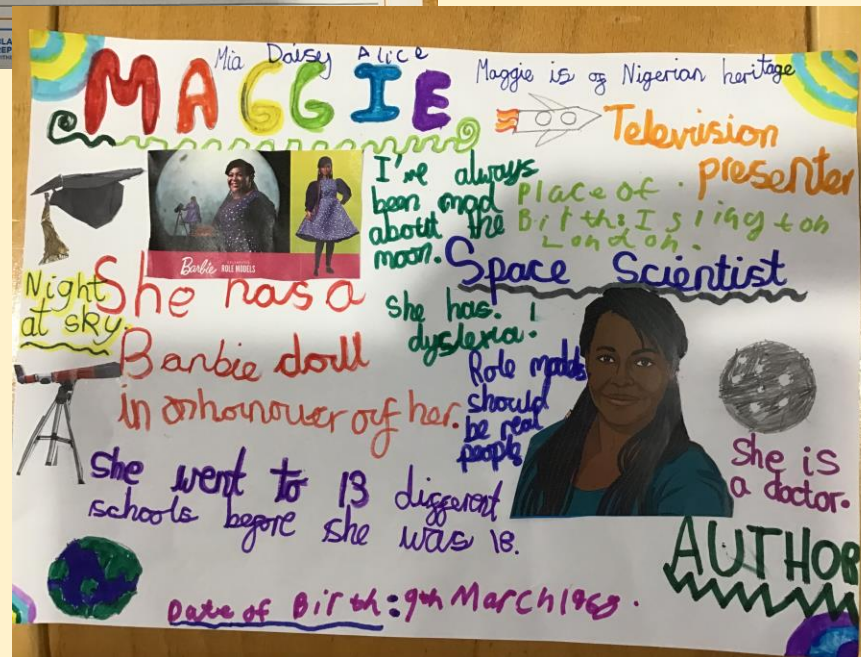 Mia Daisy Alice
MAGGIE
Maggie is of Nigerian heritage
Television
presenter
I've always
been mad
about the
moon.
Place of
Birth: Islington
London.
Barbie ROLE MODELS
Space Scientist
Night
at sky.
She has a
Barbie doll
in honouver of her.
She has
dyslexia!
Role models
should
be real
people
She is
a doctor.
She went to 13 different
schools before she was 18.
AUTHOR
Date of Birth: 9th March 1968.